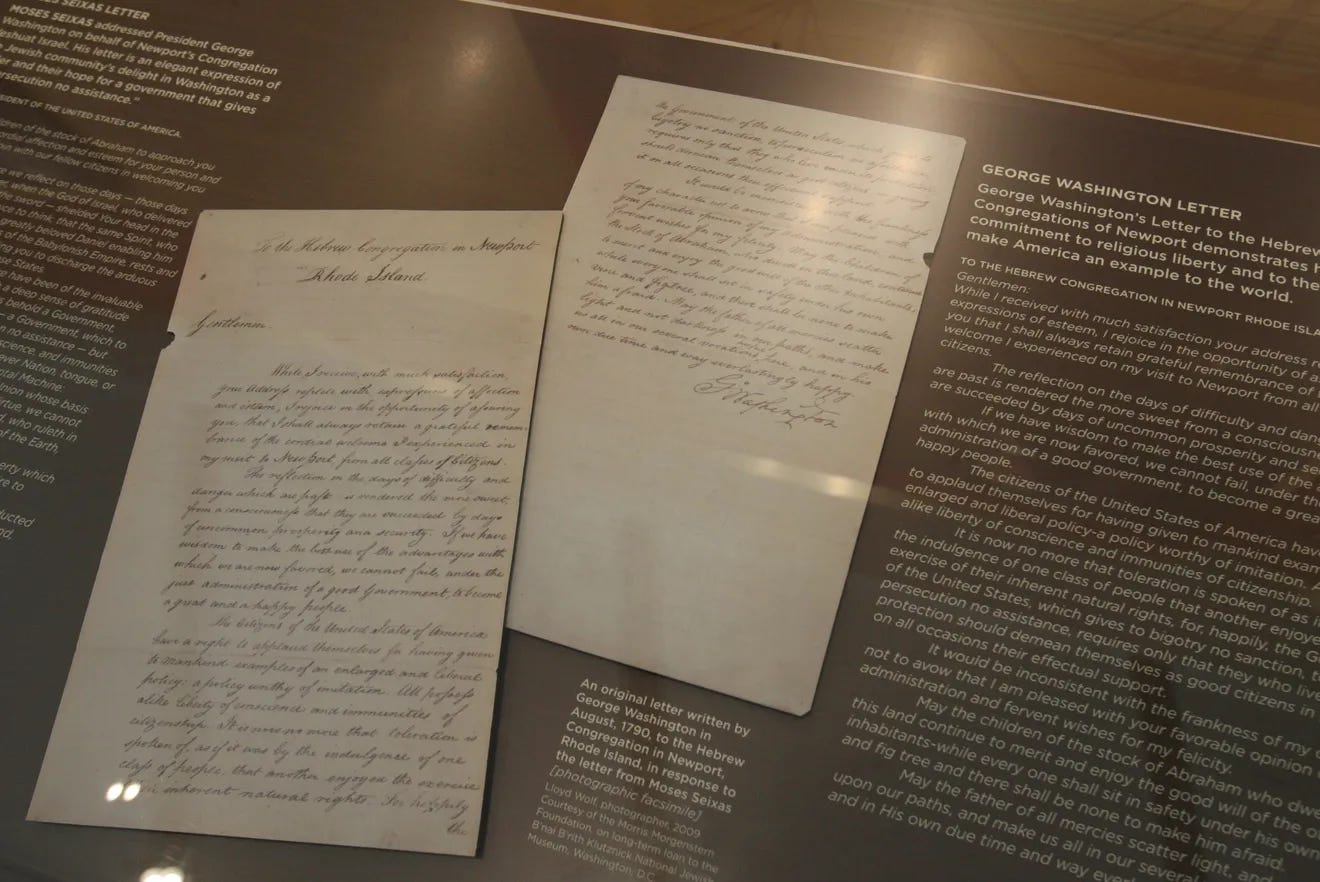 ES SEIXAS LETTER
MOSES SEIXAS addressed President George
Washington on behalf of Newport's Congregation
eshuat Israel. His letter is an elegant expression of
Jewish community's delight in Washington as a
er and their hope for a government that gives
ersecution no assistance."
SIDENT OF THE UNITED STATES OF AMERICA.
ldren of the stock of Abraham to approach you
ordial affection and esteem for your person and
oin with our fellow citizens in welcoming you
re we reflect on those days — those days
er, when the God of Israel, who delivered
he sword — shielded Your head in the
nce to think, that the same Spirit, who
reatly beloved Daniel enabling him
s of the Babylonish Empire, rests and
ng you to discharge the arduous
se States.
e have been of the invaluable
a deep sense of gratitude
s behold a Government,
— a Government, which to
n no assistance — but
science, and immunities
ever Nation, tongue, or
ntal Machine:
nion whose basis
irtue, we cannot
d, who ruleth in
of the Earth,
erty which
re to
ducted
nd,
To the Hebrew Congregation in Newport
Rhode Island.
Gentlemen
While I receive, with much satisfaction,
your Address replete with expressions of affection
and esteem, I rejoice in the opportunity of assuring
you, that I shall always retain a grateful remem-
brance of the cordial welcome I experienced in
my visit to Newport, from all classes of Citizens.
The reflection on the days of difficulty and
danger which are past is rendered the more sweet,
from a consciousness that they are succeeded by days
of uncommon prosperity and security. If we have
wisdom to make the best use of the advantages with
which we are now favored, we cannot fail, under the
just administration of a good Government, to become
a great and a happy people.
The Citizens of the United States of America
have a right to applaud themselves for having given
to mankind examples of an enlarged and liberal
policy: a policy worthy of imitation. All possess
alike liberty of conscience and immunities of
citizenship. It is now no more that toleration is
spoken of, as if it was by the indulgence of one
class of people, that another enjoyed the exercise
inherent natural rights. For happily
the
the Government of the United States, which gives to
bigotry no sanction, to persecution no assistance
requires only that they who live under its protection
should demean themselves as good citizens, in giving
it on all occasions their effectual support.
It would be inconsistent with the frankness
of my character not to avow that I am pleased with
your favorable opinion of my administration, and
fervent wishes for my felicity. May the children of
the Stock of Abraham, who dwell in this land, continue
to merit and enjoy the good will of the other Inhabitants,
while every one shall sit in safety under his own
vine and figtree, and there shall be none to make
him afraid. May the father of all mercies scatter
light and not darkness in our paths, and make
us all in our several vocations useful here, and in his
own due time and way everlastingly happy.
G. Washington
An original letter written by
George Washington in
August, 1790, to the Hebrew
Congregation in Newport,
Rhode Island, in response to
the letter from Moses Seixas
[photographic facsimile]
Lloyd Wolf, photographer, 2009
Courtesy of the Morris Morgenstern
Foundation, on long-term loan to the
B'nai B'rith Klutznick National Jewish
Museum, Washington, D.C.
GEORGE WASHINGTON LETTER
George Washington's Letter to the Hebrew
Congregations of Newport demonstrates h
commitment to religious liberty and to the
make America an example to the world.
TO THE HEBREW CONGREGATION IN NEWPORT RHODE ISLA
Gentlemen:
While I received with much satisfaction your address r
expressions of esteem, I rejoice in the opportunity of a
you that I shall always retain grateful remembrance of
welcome I experienced on my visit to Newport from all
citizens.
The reflection on the days of difficulty and dang
are past is rendered the more sweet from a consciousne
are succeeded by days of uncommon prosperity and sec
If we have wisdom to make the best use of the
with which we are now favored, we cannot fail, under th
administration of a good government, to become a grea
happy people.
The citizens of the United States of America hav
to applaud themselves for having given to mankind exam
enlarged and liberal policy–a policy worthy of imitation.
alike liberty of conscience and immunities of citizenship.
It is now no more that toleration is spoken of as i
the indulgence of one class of people that another enjoye
exercise of their inherent natural rights, for, happily, the G
of the United States, which gives to bigotry no sanction, t
persecution no assistance, requires only that they who live
protection should demean themselves as good citizens in
on all occasions their effectual support.
It would be inconsistent with the frankness of my
not to avow that I am pleased with your favorable opinion
administration and fervent wishes for my felicity.
May the children of the stock of Abraham who dwe
this land continue to merit and enjoy the good will of the o
inhabitants–while every one shall sit in safety under his own
and fig tree and there shall be none to make him afraid.
May the father of all mercies scatter light, and
upon our paths, and make us all in our several
and in His own due time and way ever